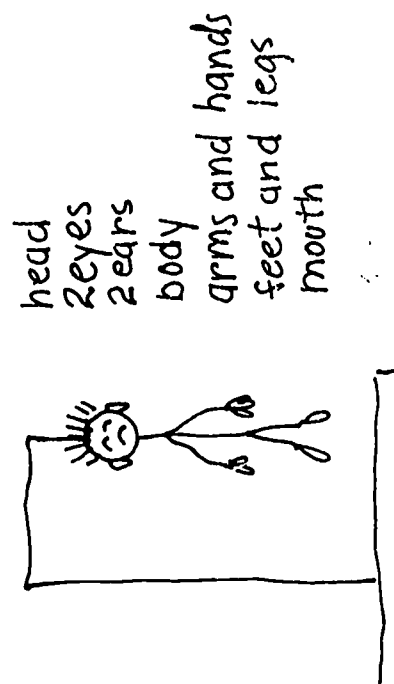 head
2eyes
2ears
body
arms and hands
feet and legs
mouth